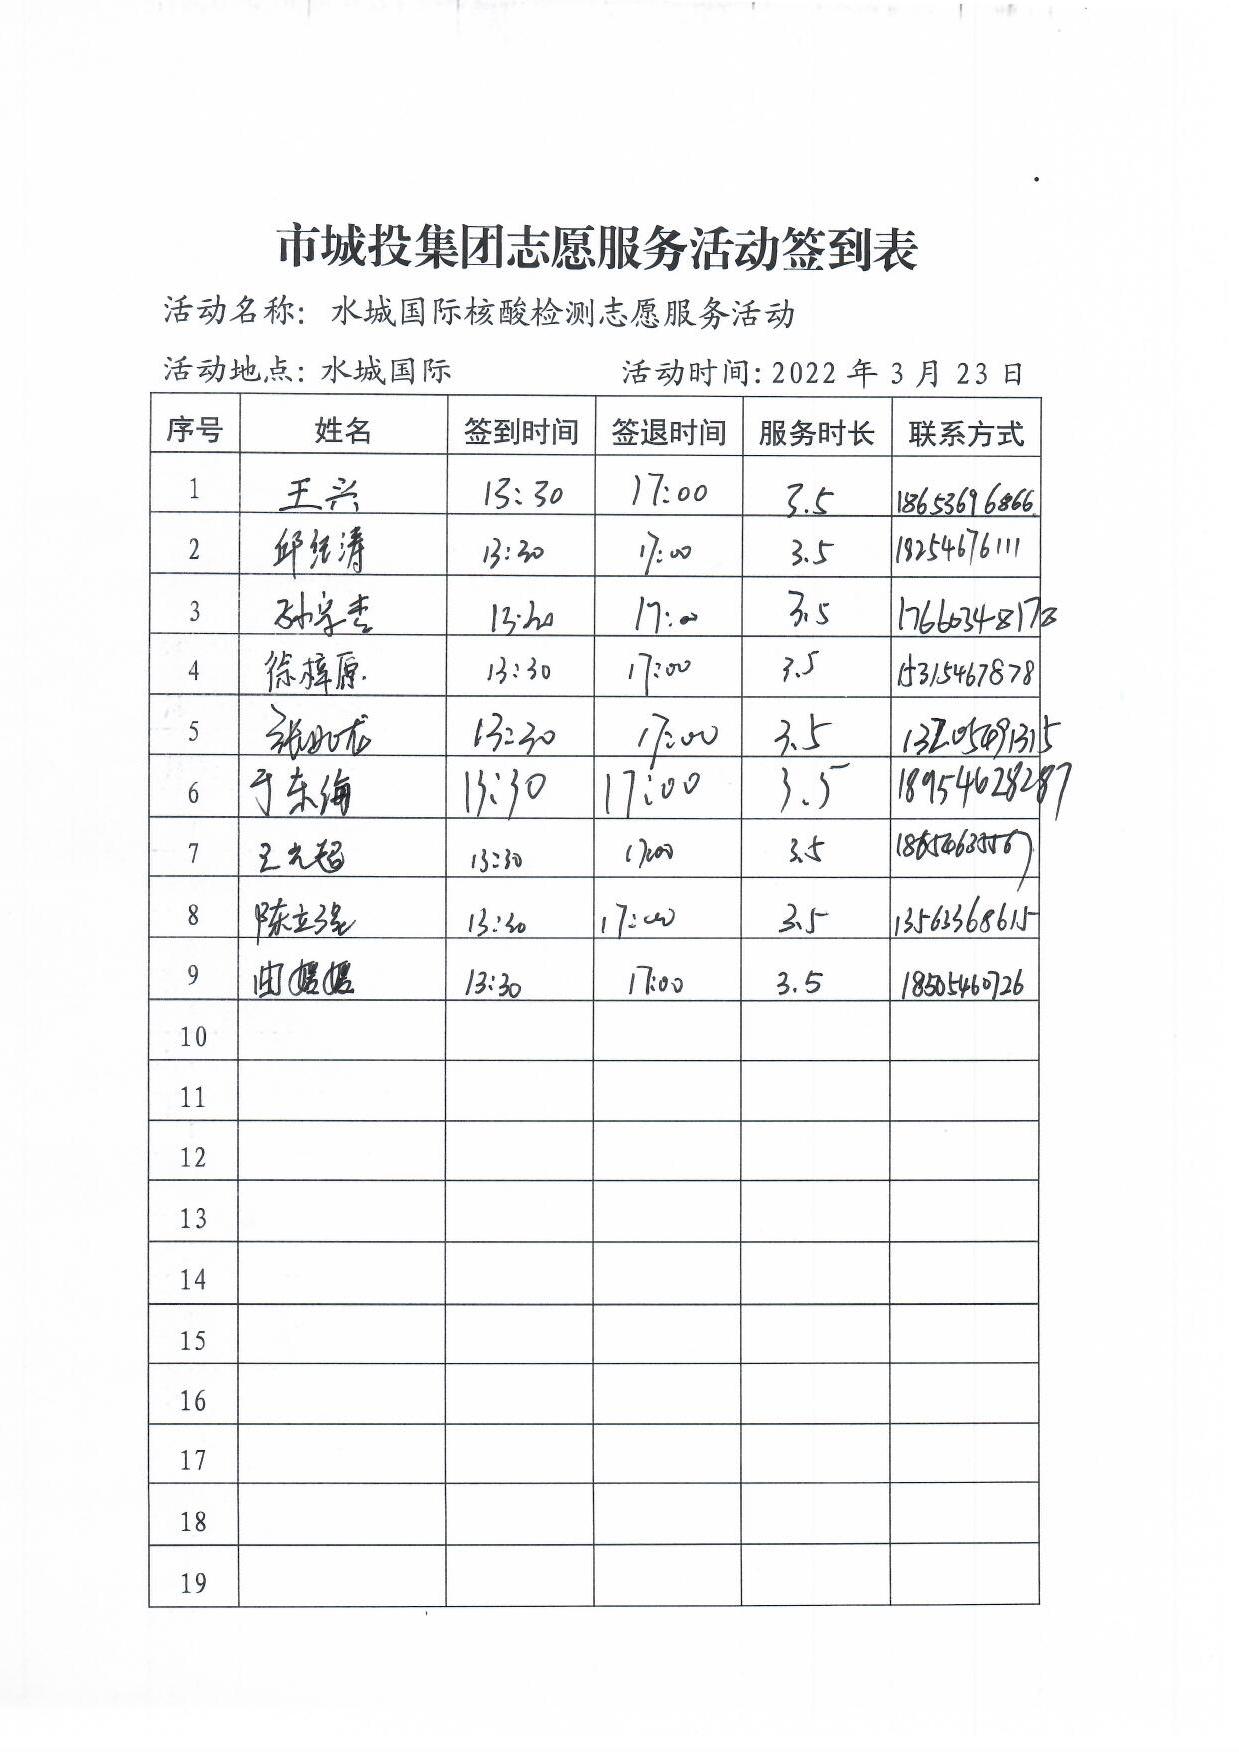 市城投集团志愿服务活动签到表
活动名称：水城国际核酸检测志愿服务活动
活动地点：水城国际 活动时间：2022 年 3 月 23 日
序号 姓名 签到时间 签退时间 服务时长 联系方式
1 王兴 13:30 17:00 3.5 18653696866
2 邱 涛 13:30 17:00 3.5 18254676111
3 孙 13:30 17:00 3.5 17660348178
4 徐梓原 13:30 17:00 3.5 15315467878
5 张 龙 13:30 17:00 3.5
6 于东海 13:30 17:00 3.5 18954628287
7 王光超 13:30 17:00 3.5
8 陈立强 13:30 17:00 3.5 13563368615
9 曲媛媛 13:30 17:00 3.5 18505460726
10
11
12
13
14
15
16
17
18
19